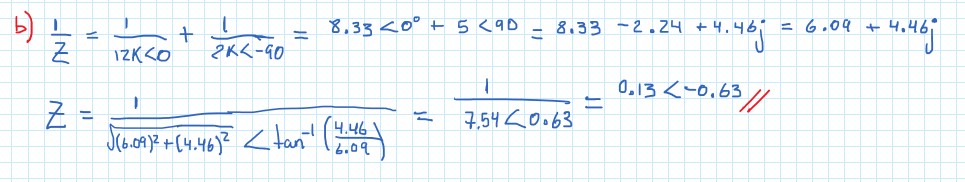 b) 1/Z = 1/12K<0 + 1/2K<-90 = 8.33 <0° + 5 <90 = 8.33 - 2.24 + 4.46j = 6.09 + 4.46j
Z = 1/√(6.09)²+(4.46)² < tan⁻¹(4.46/6.09) = 1/7.54<0.63 = 0.13 <-0.63 //